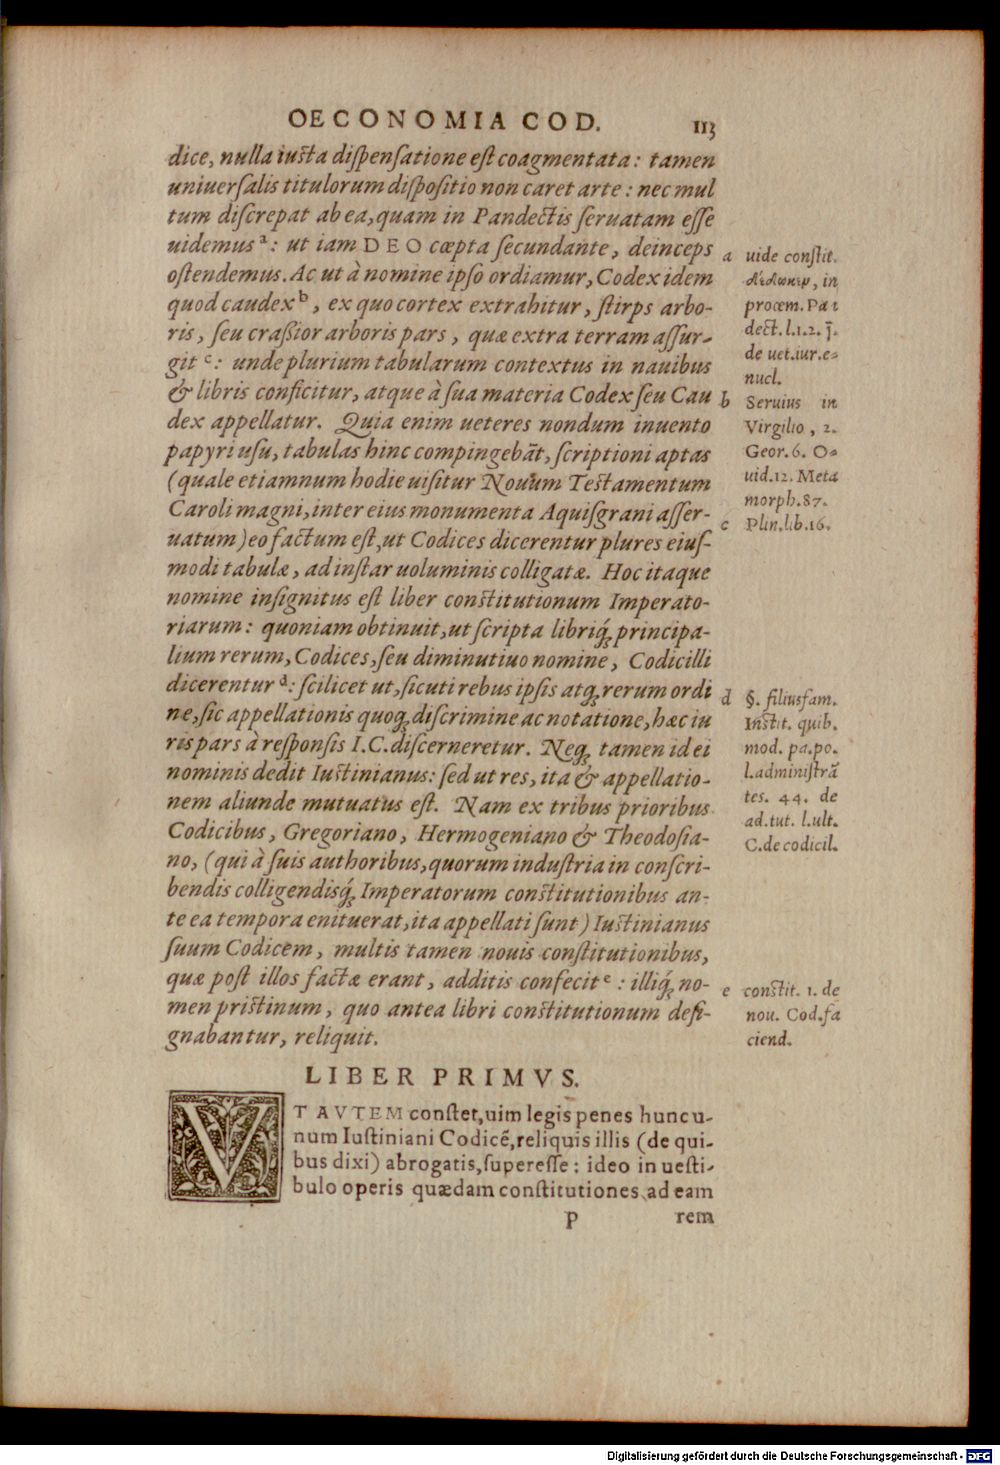 OECONOMIA COD. 113
dice, nulla iusta dispensatione est coagmentata: tamen
uniuersalis titulorum dispositio non caret arte: nec mul
tum discrepat ab ea, quam in Pandectis seruatam esse
uidemus a: ut iam DEO cœpta secundante, deinceps
ostendemus. Ac ut à nomine ipso ordiamur, Codex idem
quod caudex b, ex quo cortex extrahitur, stirps arbo-
ris, seu craßior arboris pars, quæ extra terram assur-
git c: unde plurium tabularum contextus in nauibus
& libris conficitur, atque à sua materia Codex seu Cau
dex appellatur. Quia enim ueteres nondum inuento
papyri usu, tabulas hinc compingebāt, scriptioni aptas
(quale etiamnum hodie uisitur Nouum Testamentum
Caroli magni, inter eius monumenta Aquisgrani asser-
uatum) eo factum est, ut Codices dicerentur plures eius-
modi tabulæ, ad instar uoluminis colligatæ. Hoc itaque
nomine insignitus est liber constitutionum Imperato-
riarum: quoniam obtinuit, ut scripta libriq́; principa-
lium rerum, Codices, seu diminutiuo nomine, Codicilli
dicerentur d: scilicet ut, sicuti rebus ipsis atq; rerum ordi
ne, sic appellationis quoq; discrimine ac notatione, hæc iu
ris pars à responsis I.C. discerneretur. Neq; tamen id ei
nominis dedit Iustinianus: sed ut res, ita & appellatio-
nem aliunde mutuatus est. Nam ex tribus prioribus
Codicibus, Gregoriano, Hermogeniano & Theodosia-
no, (qui à suis authoribus, quorum industria in conscri-
bendis colligendisq́; Imperatorum constitutionibus an-
te ea tempora enituerat, ita appellati sunt) Iustinianus
suum Codicem, multis tamen nouis constitutionibus,
quæ post illos factæ erant, additis confecit e: illiq́; no-
men pristinum, quo antea libri constitutionum desi-
gnabantur, reliquit.
a uide constit.
in
procem. Pa
dect. l.1.2. §.
de uet.iur.e-
nucl.
b Seruius in
Virgilio, 2.
Geor. 6. O-
uid.12. Meta
morph.87.
c Plin.lib.16.
d §. filiusfam.
Instit. quib.
mod. pa.po.
l.administrā
tes. 44. de
ad.tut. l.ult.
C.de codicil.
e constit. 1. de
nou. Cod.fa
ciend.
LIBER PRIMVS.
VT AVTEM constet, uim legis penes hunc u-
num Iustiniani Codicē, reliquis illis (de qui-
bus dixi) abrogatis, superesse: ideo in uesti-
bulo operis quædam constitutiones ad eam
P rem
Digitalisierung gefördert durch die Deutsche Forschungsgemeinschaft - DFG